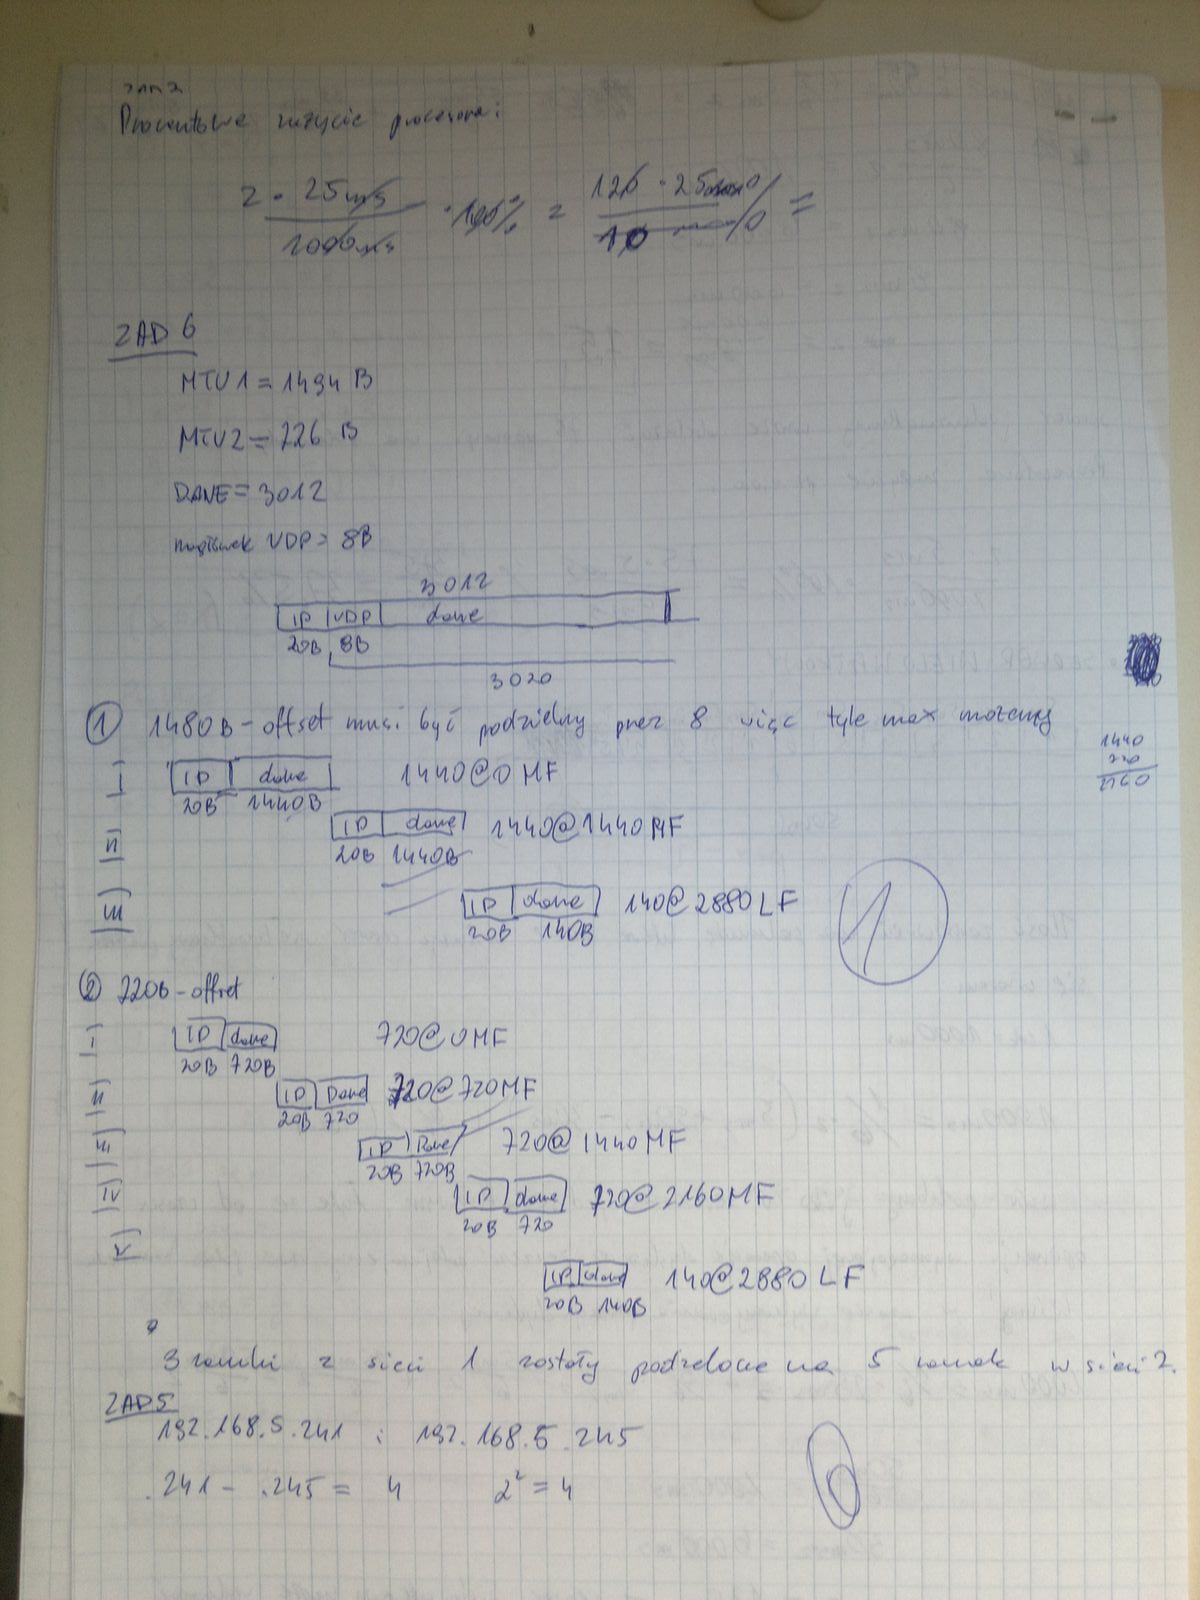 ZAD 2
Procentowe zużycie procesora:
2 · 25 ms / 1000 ms · 100% = 126 · 25 / 10 % =
ZAD 6
MTU1 = 1494 B
MTU2 = 726 B
DANE = 3012
nagłówek UDP = 8B
3012
IP UDP dane
20B 8B
3020
① 1480B - offset musi być podzielny przez 8 więc tyle max możemy
1440
720
2160
I IP dane 1440@0 MF
20B 1440B
II IP dane 1440@1440 MF
20B 1440B
III IP dane 140@2880 LF
20B 140B
1
② 720B - offset
I IP dane 720@0MF
20B 720B
II IP Dane 720@720MF
20B 720
III IP Dane 720@1440MF
20B 720B
IV IP dane 720@2160MF
20B 720
V
IP dane 140@2880 LF
20B 140B
3 ramki z sieci 1 zostały podzielone na 5 ramek w sieci 2.
ZAD 5
192.168.5.241 i 192.168.5.245
.241 - .245 = 4 2² = 4
0